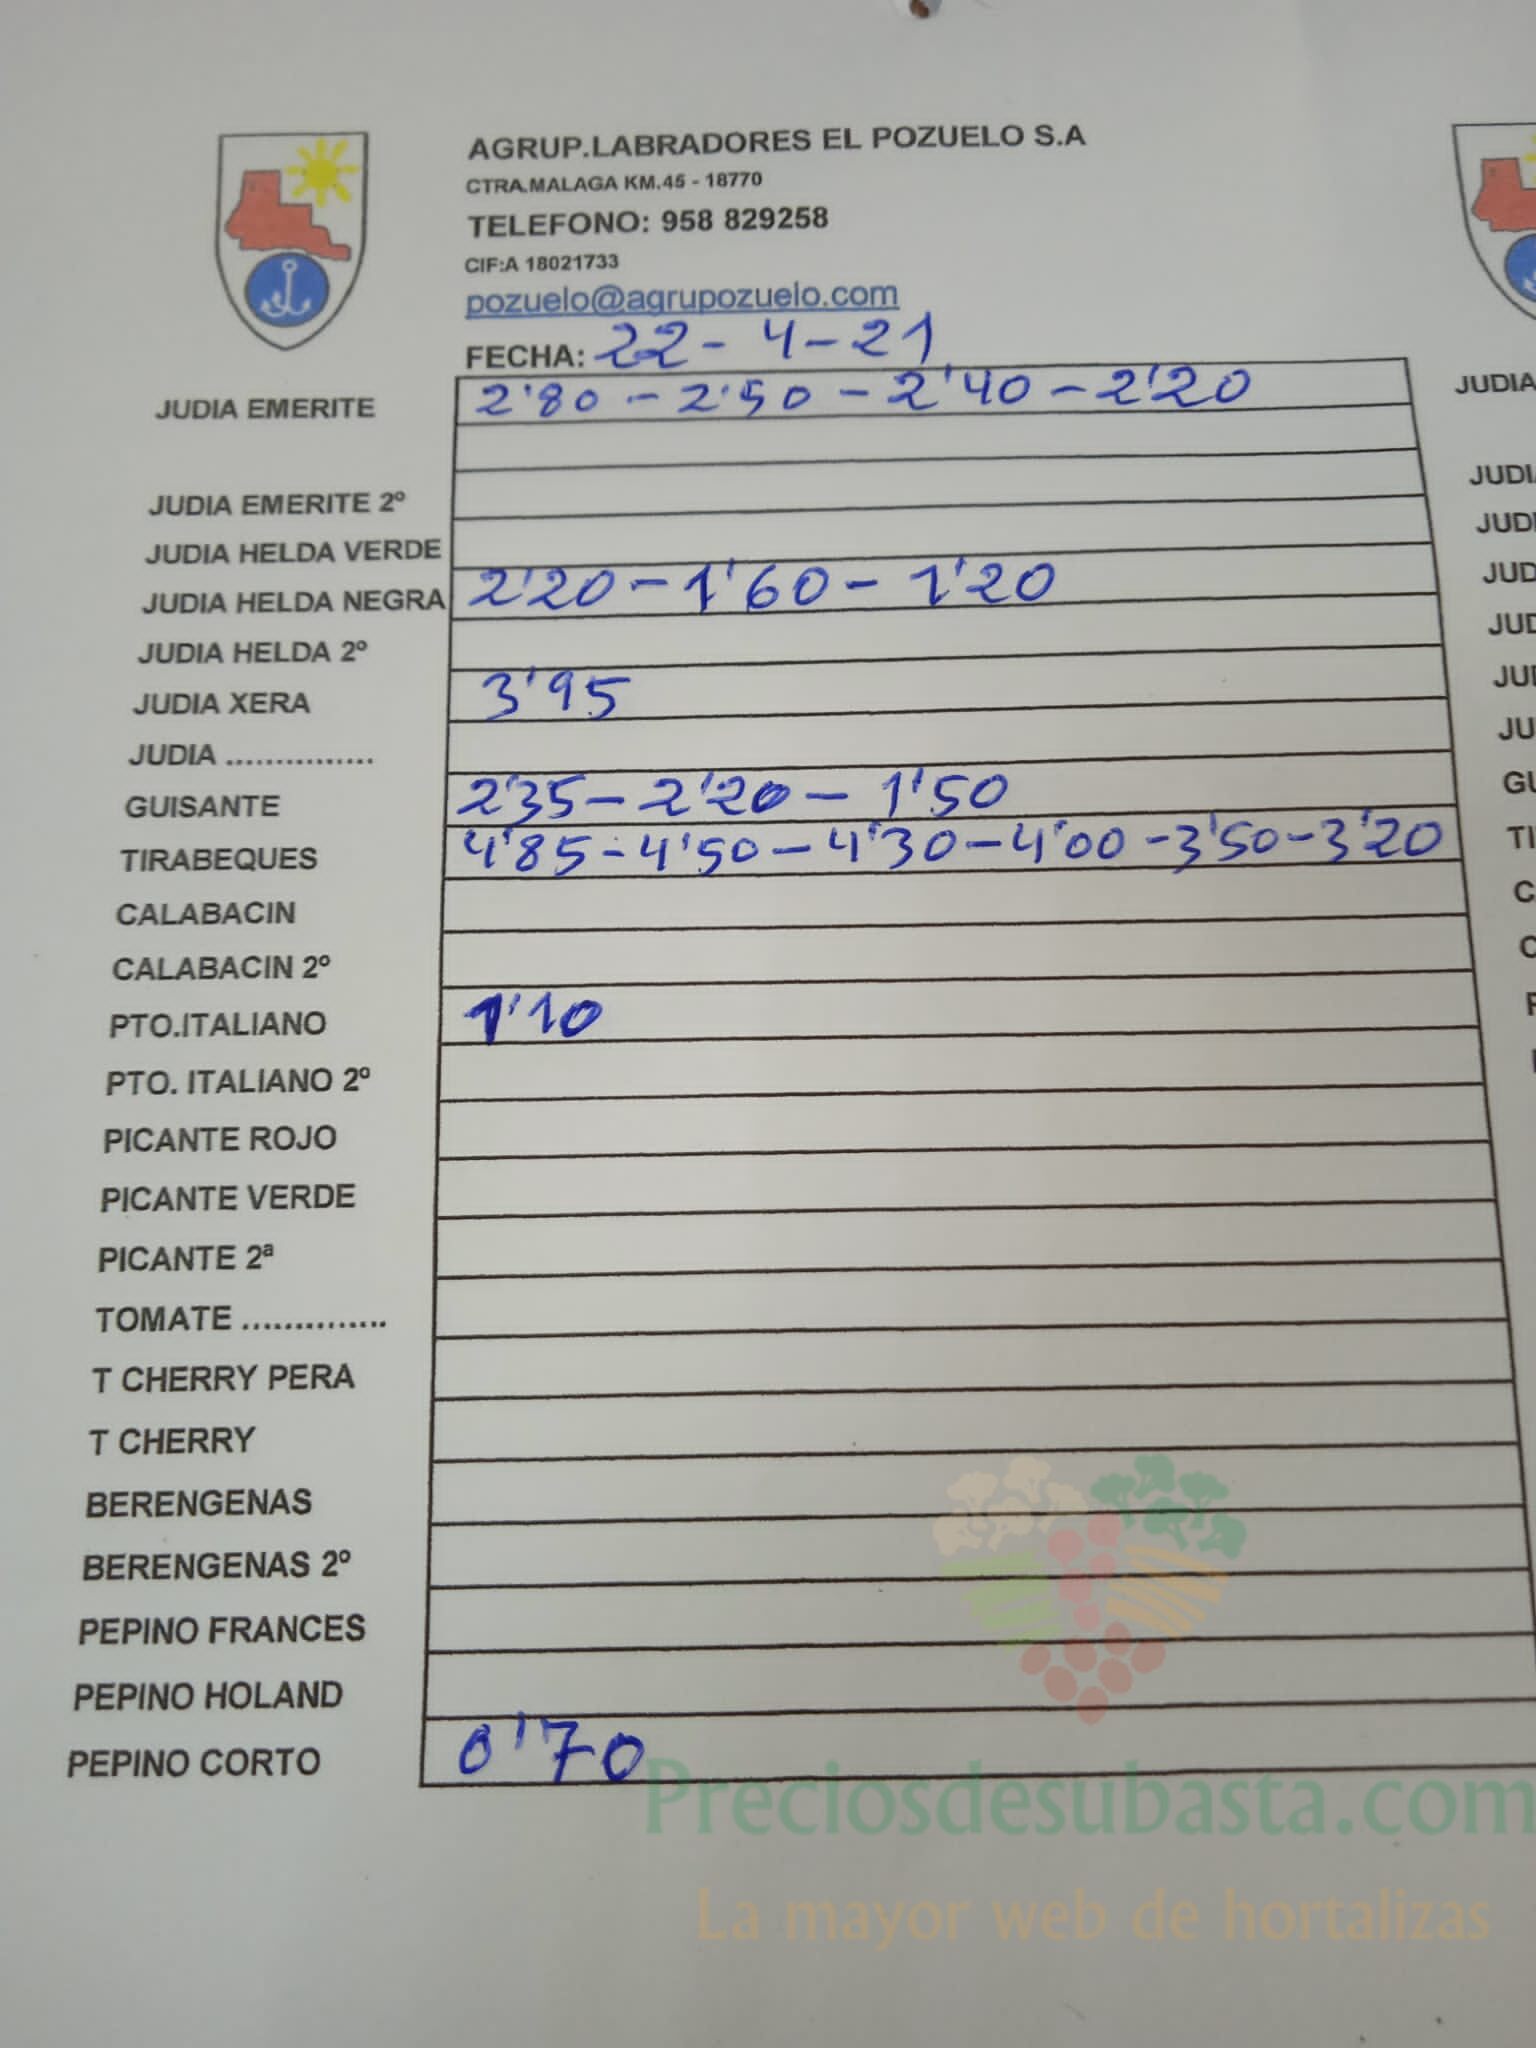 AGRUP.LABRADORES EL POZUELO S.A
CTRA.MALAGA KM.45 - 18770
TELEFONO: 958 829258
CIF:A 18021733
pozuelo@agrupozuelo.com
FECHA: 22-4-21
JUDIA EMERITE 2'80 - 2'50 - 2'40 - 2'20
JUDIA EMERITE 2º
JUDIA HELDA VERDE
JUDIA HELDA NEGRA 2'20 - 1'60 - 1'20
JUDIA HELDA 2º
JUDIA XERA 3'95
JUDIA ...............
GUISANTE 2'35 - 2'20 - 1'50
TIRABEQUES 4'85 - 4'50 - 4'30 - 4'00 - 3'50 - 3'20
CALABACIN
CALABACIN 2º
PTO.ITALIANO 1'10
PTO. ITALIANO 2º
PICANTE ROJO
PICANTE VERDE
PICANTE 2ª
TOMATE ..............
T CHERRY PERA
T CHERRY
BERENGENAS
BERENGENAS 2º
PEPINO FRANCES
PEPINO HOLAND
PEPINO CORTO 0'70
JUDIA
Preciosdesubasta.com
La mayor web de hortalizas